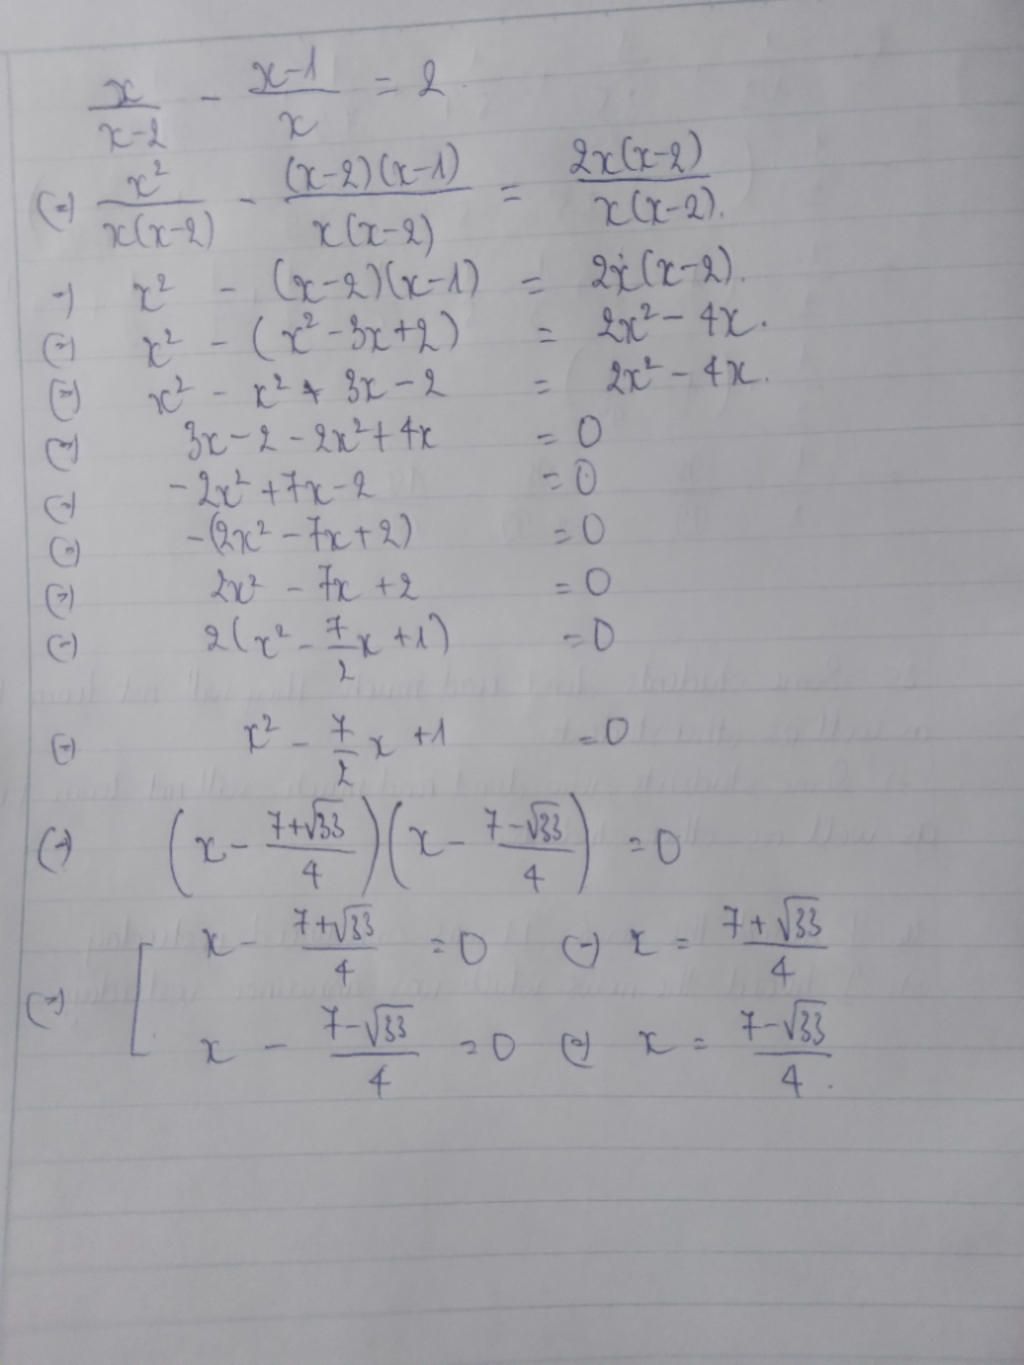 x/(x-2) - (x-1)/x = 2.
(=) x²/(x(x-2)) - ((x-2)(x-1))/(x(x-2)) = (2x(x-2))/(x(x-2)).
=) x² - (x-2)(x-1) = 2x(x-2).
(=) x² - (x² - 3x + 2) = 2x² - 4x.
(=) x² - x² + 3x - 2 = 2x² - 4x.
(=) 3x - 2 - 2x² + 4x = 0
(=) -2x² + 7x - 2 = 0
(=) -(2x² - 7x + 2) = 0
(=) 2x² - 7x + 2 = 0
(=) 2(x² - 7/2 x + 1) = 0
(=) x² - 7/2 x + 1 = 0
(=) (x - (7+√33)/4)(x - (7-√33)/4) = 0
(=) [ x - (7+√33)/4 = 0 (=) x = (7+√33)/4
x - (7-√33)/4 = 0 (=) x = (7-√33)/4.